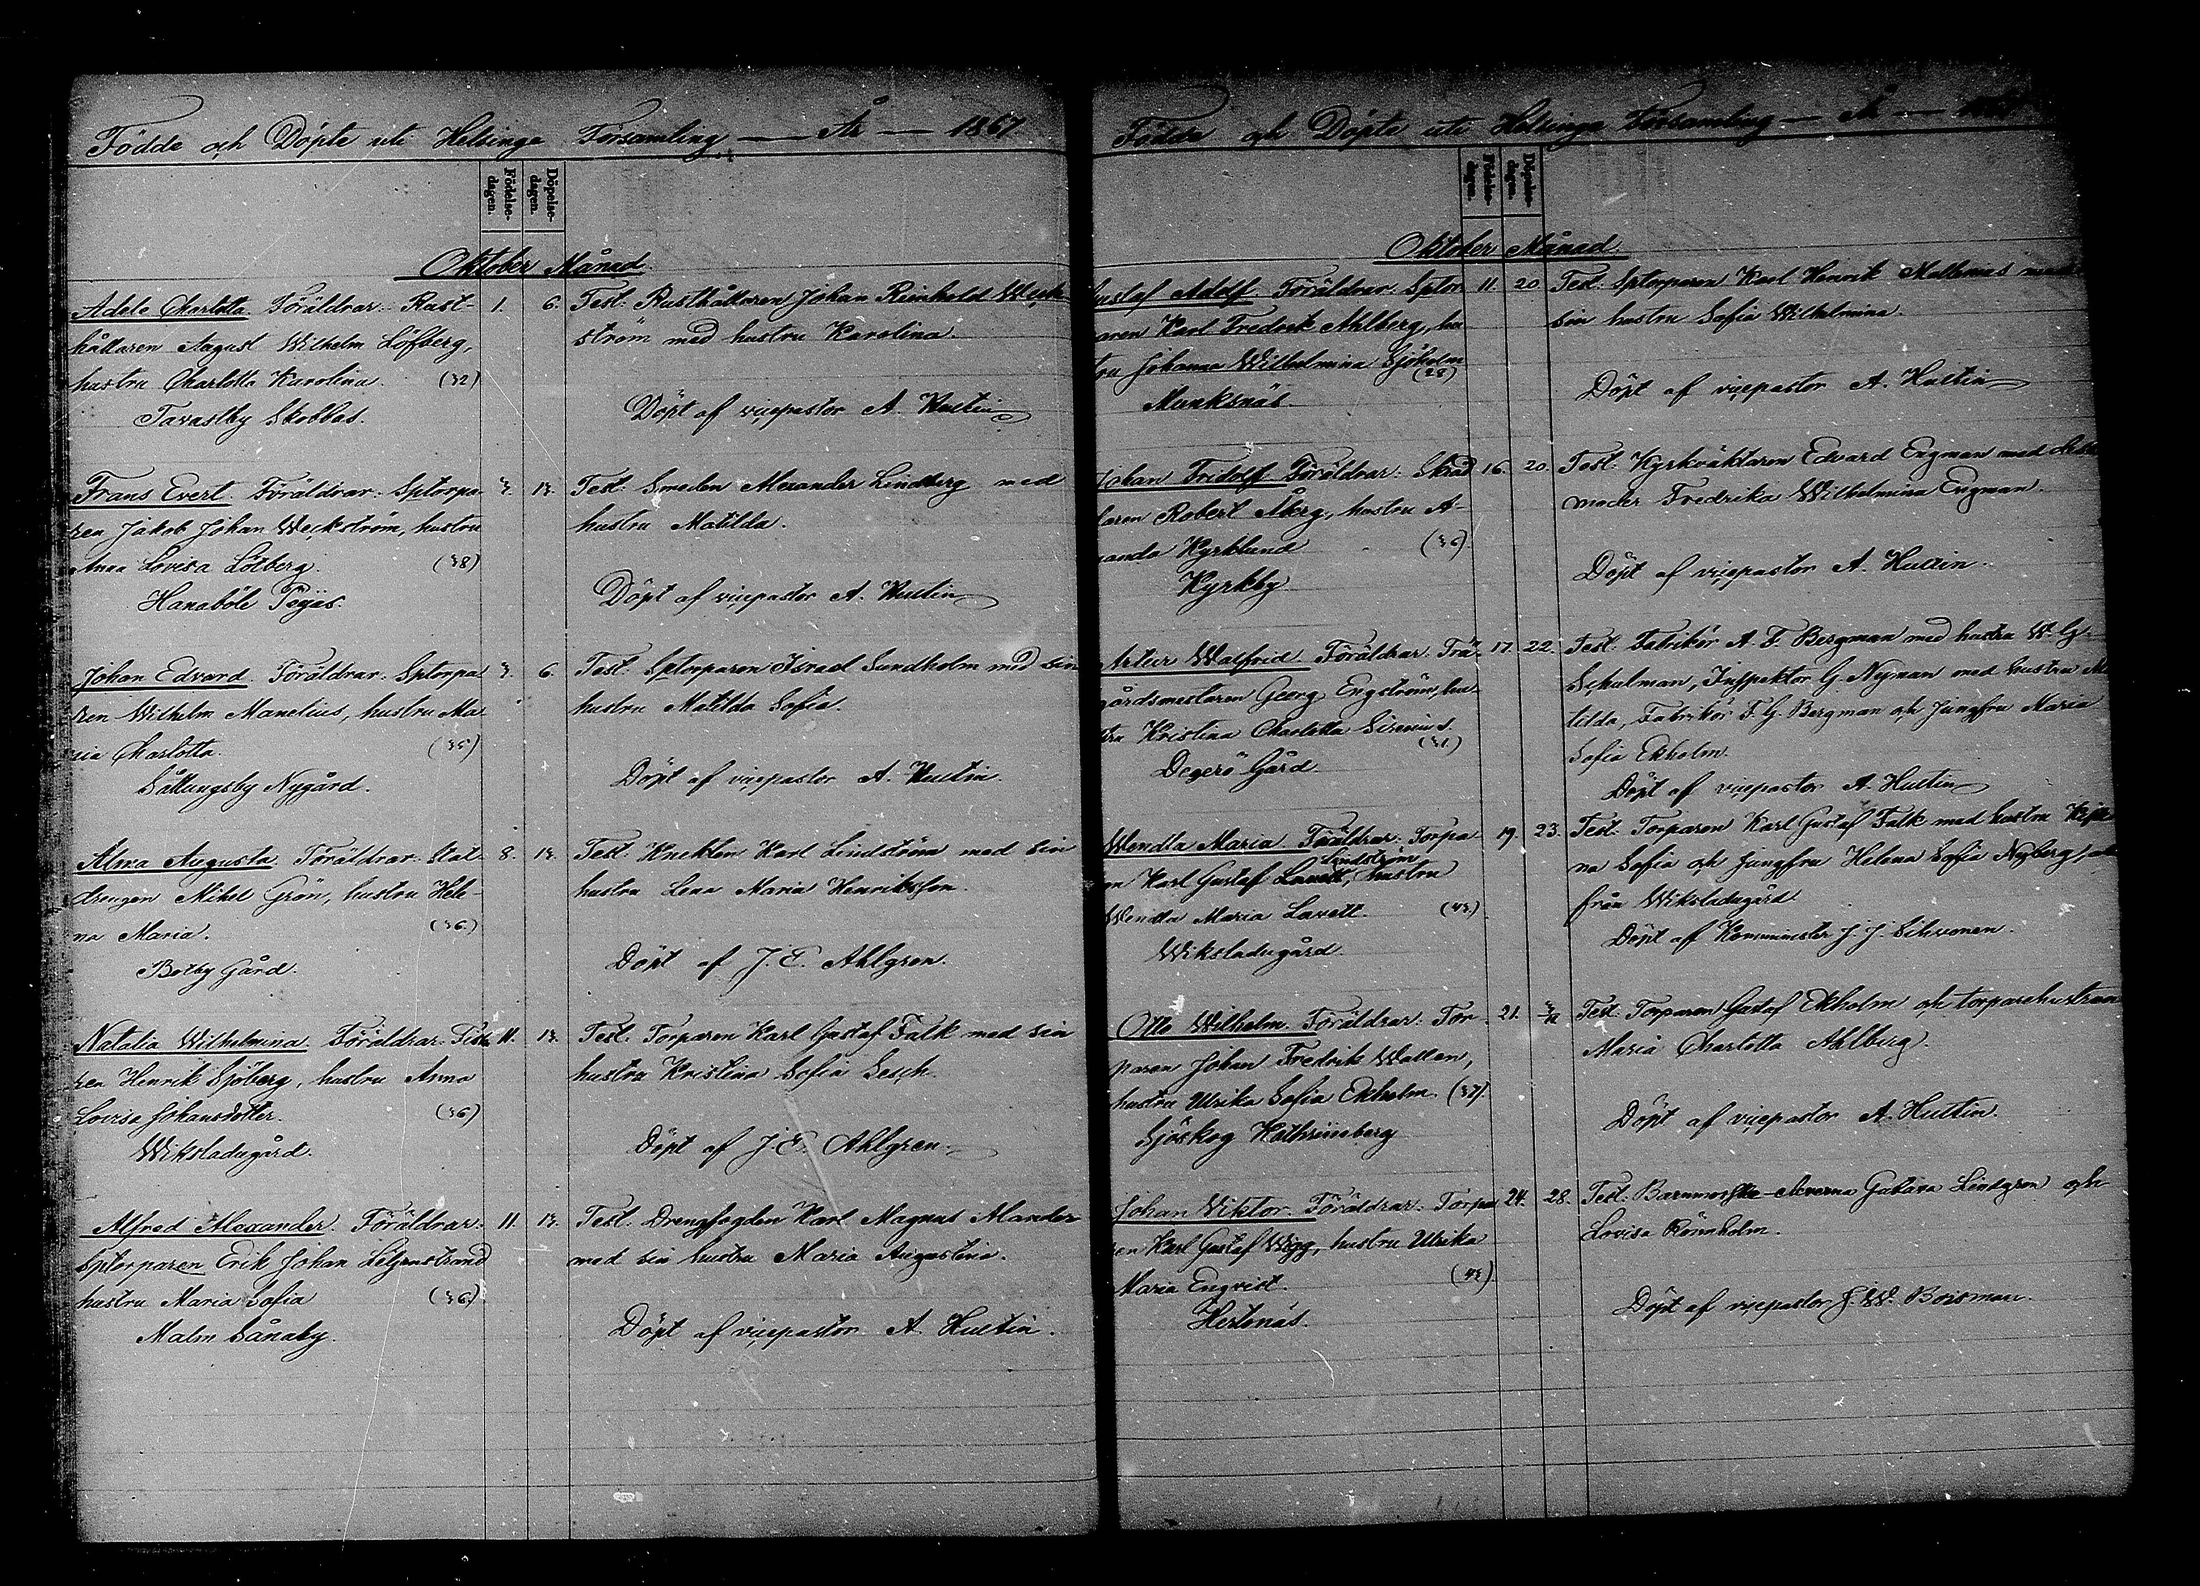 Födde och Döpte uti Helsinge Församling — År — 1867
Födelse-dagen.
Döpelse-dagen.
Oktober Månad.
Adele Charlotta. Föräldrar: Rust-
hållaren August Wilhelm Löfberg,
hustru Charlotta Karolina. (32)
Tavastby Skobbas.
1. 6.
Test: Rusthållaren Johan Reinhold Weck-
ström med hustru Karolina.
Döpt af vicepastor A. Hultin
Frans Evert. Föräldrar: Sptorpa-
ren Jakob Johan Weckström, hustru
Anna Lovisa Löfberg. (38)
Hanaböle Pejjas.
3. 13.
Test: Smeden Alexander Lindberg med
hustru Matilda.
Döpt af vicepastor A. Hultin
Johan Edvard. Föräldrar: Sptorpa-
ren Wilhelm Manelius, hustru Ma-
ria Charlotta. (35)
Såttungsby Nygård.
3. 6.
Test: Sptorparen Israel Sundholm med sin
hustru Matilda Sofia.
Döpt af vicepastor A. Hultin
Alma Augusta. Föräldrar: Stat-
drengen Mikel Grön, hustru Hele-
na Maria. (36)
Botby Gård.
8. 13.
Test: Knekten Karl Lindström med sin
hustru Lena Maria Henriksson.
Döpt af J. E. Ahlgren.
Natalia Wilhelmina. Föräldrar: Fiska-
ren Henrik Sjöberg, hustru Anna
Lovisa Johansdotter. (36)
Wiksladugård.
11. 13.
Test: Torparen Karl Gustaf Falk med sin
hustru Kristina Sofia Sesch.
Döpt af J. E. Ahlgren.
Alfred Alexander. Föräldrar:
Sptorparen Erik Johan Liljenstrand
hustru Maria Sofia (36)
Malm Sånaby.
11. 13.
Test: Drengfogden Karl Magnus Alander
med sin hustru Maria Augustina.
Döpt af vicepastor A. Hultin.
Födde och Döpte uti Helsinge Församling — År — 1867
Födelse-dagen.
Döpelse-dagen.
Oktober Månad.
Gustaf Adolf. Föräldrar: Sptor-
paren Karl Fredrik Ahlberg, hus-
tru Johanna Wilhelmina Sjöholm
(28)
Munksnäs.
11. 20.
Test: Sptorparen Karl Henrik Malhmas med
sin hustru Sofia Wilhelmina.
Döpt af vicepastor A. Hultin
Johan Fridolf. Föräldrar: Skräd-
daren Robert Åberg, hustru A-
manda Kyrklund (36).
Kyrkby
16. 20.
Test: Kyrkväktaren Edvard Engman med dess
moder Fredrika Wilhelmina Engman.
Döpt af vicepastor A. Hultin.
Artur Walfrid. Föräldrar: Trä-
gårdsmestaren Georg Engström, hus-
tru Kristina Charlotta Sirenius.
(31)
Degerö Gård.
17. 22.
Test: Fabrikör A. F. Bergman med hustru W. G.
Schulman, Inspektor G. Nyman med hustru Ma-
tilda, Fabrikör F. G. Bergman och Jungfru Maria
Sofia Ekholm.
Döpt af vicepastor A. Hultin
Wendla Maria. Föräldrar: Torpa-
Lindström
ren Karl Gustaf Lavett, hustru
Wendla Maria Lavett. (43).
Wiksladugård.
19. 23.
Test: Torparen Karl Gustaf Falk med hustru Kristi-
na Sofia och Jungfru Helena Sofia Nyberg,
från Wiksladugård.
Döpt af Komminister J. J. Silvonen.
Otto Wilhelm. Föräldrar: Tor-
paren Johan Fredrik Wallen,
hustru Ulrika Sofia Ekholm. (37).
Sjöskog Kathrineberg
21. 3/11
Test: Torparen Gustaf Ekholm och torparehustrun
Maria Charlotta Ahlberg.
Döpt af vicepastor A. Hultin.
Johan Viktor. Föräldrar: Torpa-
ren Karl Gustaf Wigg, hustru Ulrika
Maria Enqvist. (43)
Hertonäs.
24. 28.
Test: Gustava Lindgren och
Lovisa Rönnholm.
Döpt af vicepastor J. W. Boisman.